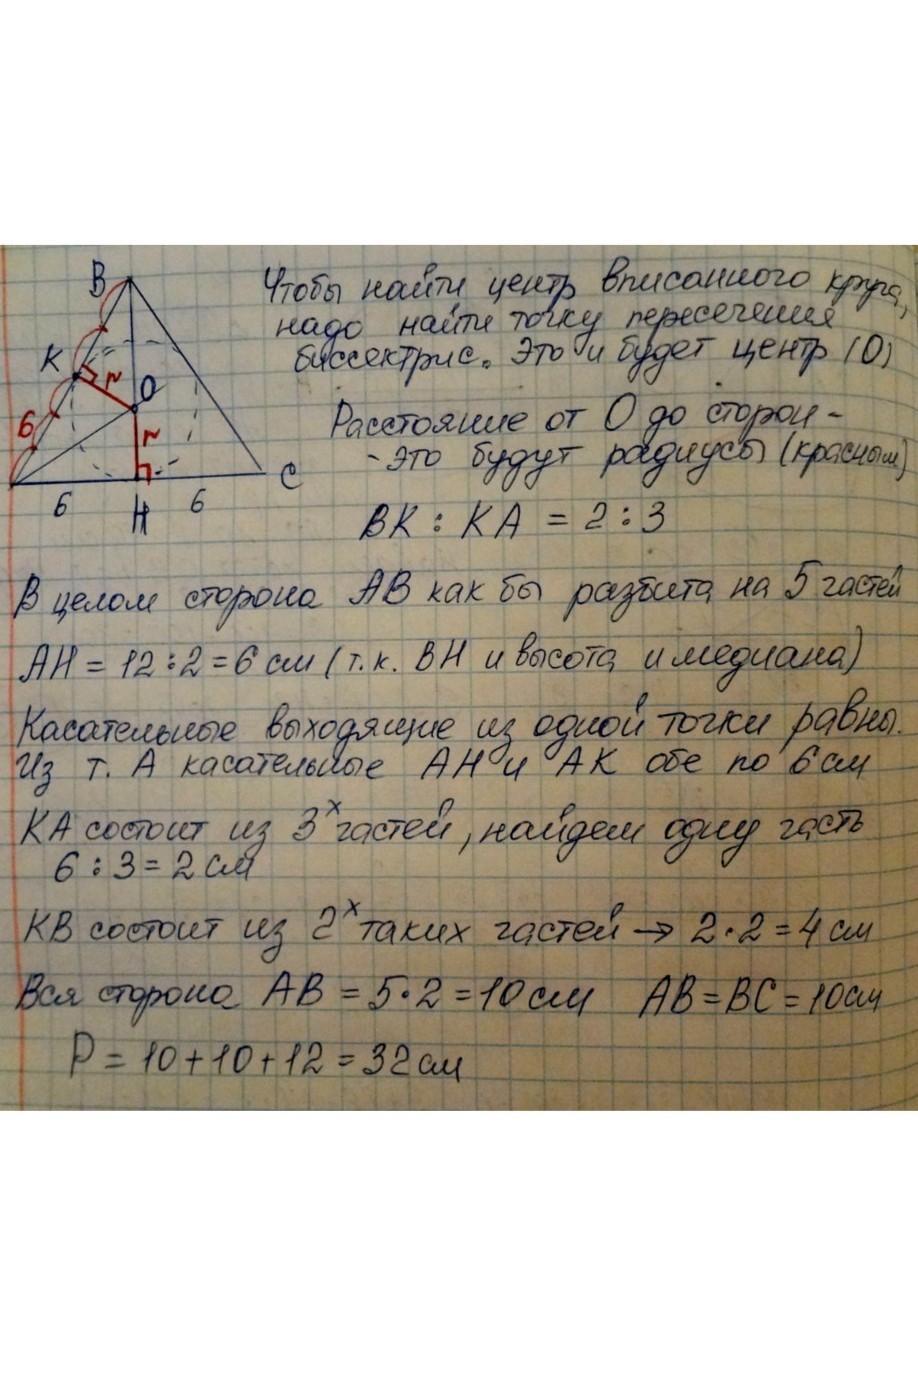 B
K
O
r
r
6
C
6
H
6
Чтобы найти центр вписанного круга,
надо найти точку пересечения
биссектрис. Это и будет центр (O)
Расстояние от O до сторон -
- это будут радиусы (красным)
BK : KA = 2 : 3
В целом сторона AB как бы разбита на 5 частей
AH = 12 : 2 = 6 см (т.к. BH и высота и медиана)
Касательные выходящие из одной точки равны.
Из т. A касательные AH и AK обе по 6 см
KA состоит из 3ˣ частей, найдем одну часть
6 : 3 = 2 см
KB состоит из 2ˣ таких частей → 2 · 2 = 4 см
Вся сторона AB = 5 · 2 = 10 см AB = BC = 10 см
P = 10 + 10 + 12 = 32 см